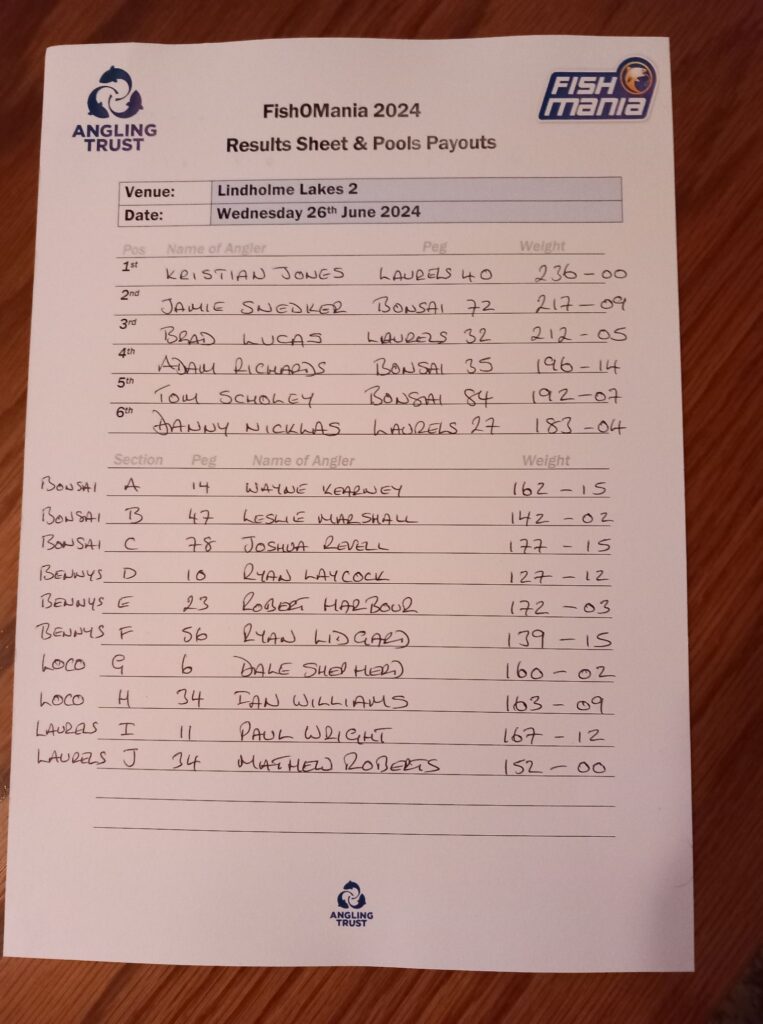 ANGLING
TRUST
FISH
MANIA
FishOMania 2024
Results Sheet & Pools Payouts
Venue: Lindholme Lakes 2
Date: Wednesday 26th June 2024
Pos Name of Angler Peg Weight
1st KRISTIAN JONES LAURELS 40 236-00
2nd JAMIE SNEDKER BONSAI 72 217-09
3rd BRAD LUCAS LAURELS 32 212-05
4th ADAM RICHARDS BONSAI 35 196-14
5th TOM SCHOLEY BONSAI 84 192-07
6th DANNY NICKLAS LAURELS 27 183-04
Section Peg Name of Angler Weight
BONSAI A 14 WAYNE KEARNEY 162-15
BONSAI B 47 LESLIE MARSHALL 142-02
BONSAI C 78 JOSHUA REVELL 177-15
BENNYS D 10 RYAN LAYCOCK 127-12
BENNYS E 23 ROBERT HARBOUR 172-03
BENNYS F 56 RYAN LIDGARD 139-15
LOCO G 6 DALE SHEPHERD 160-02
LOCO H 34 IAN WILLIAMS 163-09
LAURELS I 11 PAUL WRIGHT 167-12
LAURELS J 34 MATHEW ROBERTS 152-00
ANGLING
TRUST